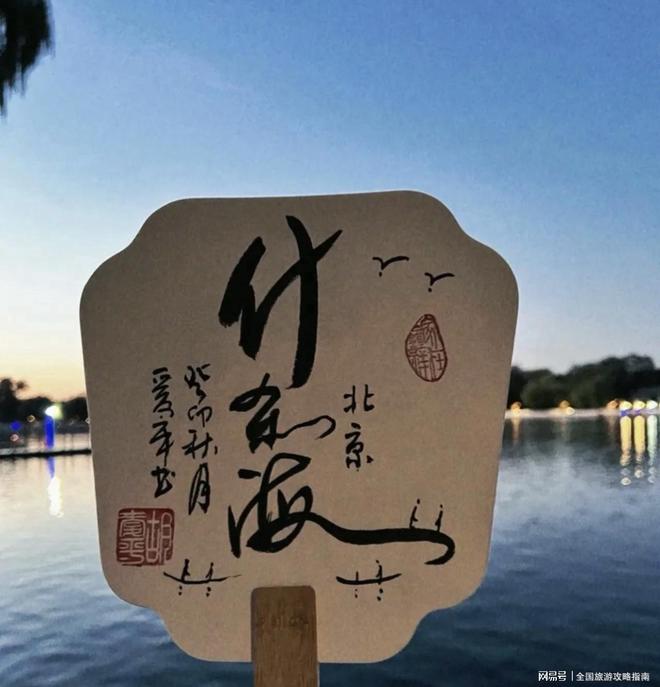 北京
什刹海
癸卯秋月
爱平书
胡
网易号 | 全国旅游攻略指南